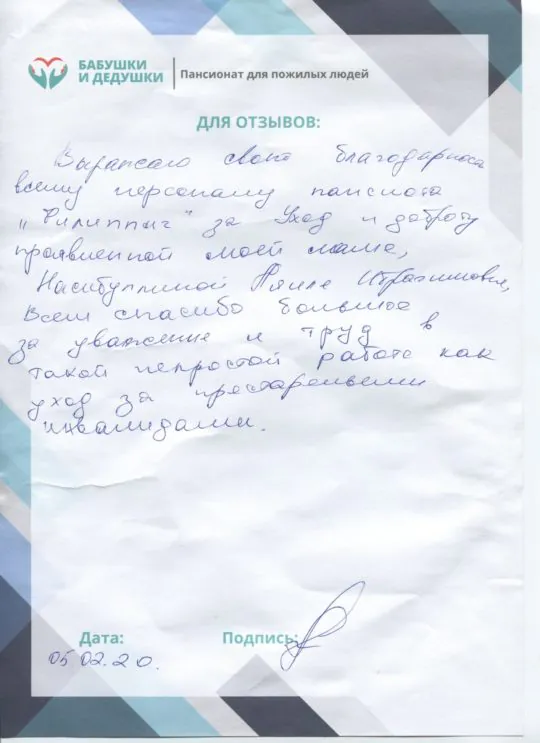 БАБУШКИ
И ДЕДУШКИ
Пансионат для пожилых людей
ДЛЯ ОТЗЫВОВ:
Выражаю свою благодарность
всему персоналу пансиота
"Филиппыч" за Уход и доброту
проявленной моей маме,
Насибуллиной Ибрагимовне,
Всем спасибо большое
за уважение и труд в
такой непростой работе как
уход за престарелыми
инвалидами.
Дата:
Подпись:
05.02.20.